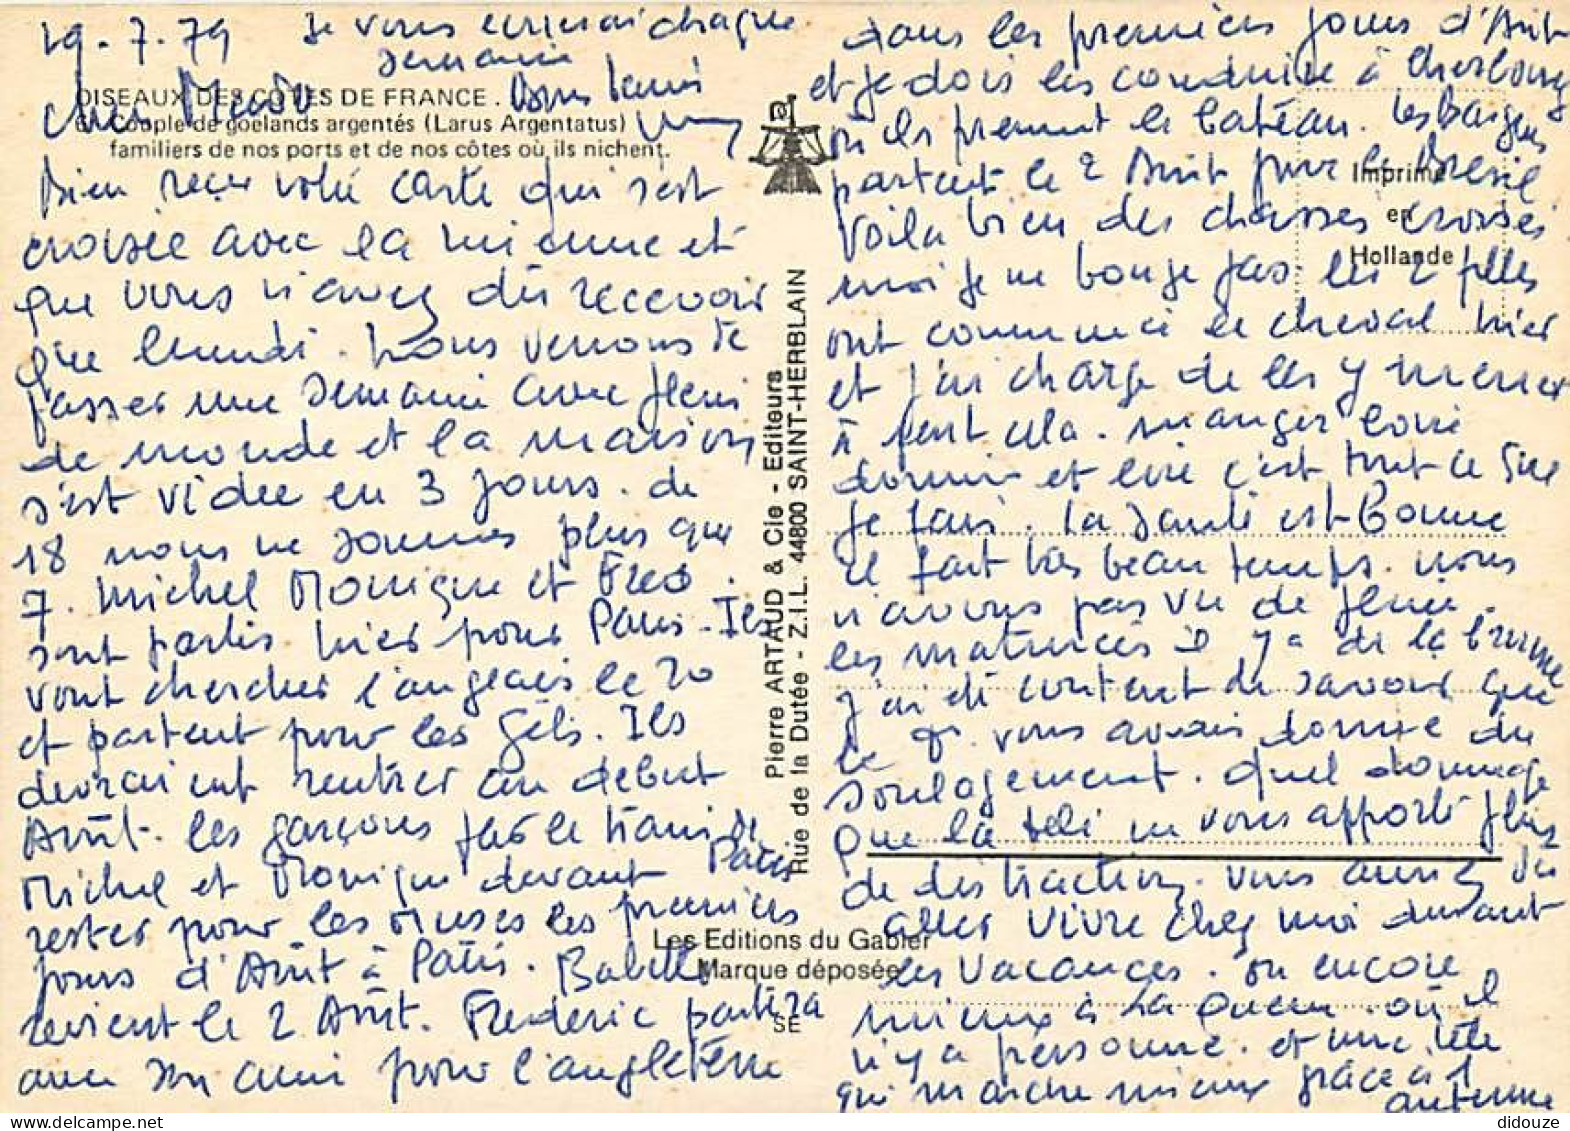 19.7.79 Je vous écrirai chaque
semaine
OISEAUX DES CÔTES DE FRANCE.
Cher
6 Couple de goélands argentés (Larus Argentatus)
familiers de nos ports et de nos côtes où ils nichent.
Bien reçu votre carte qui s'est
croisée avec la mienne et
que vous n'avez dû recevoir
que lundi. Nous venons de
passer une semaine avec plein
de monde et la maison
s'est vidée en 3 jours. de
18 nous ne sommes plus que
7. Michel Monique et Fred
sont partis hier pour Paris. Ils
vont chercher l'anglais le 20
et partent pour les Gets. Ils
devraient rentrer au début
Août. les garçons par le train de
Paris
Michel et Monique devant
rester pour les Muses les premiers
jours d'Août à Paris. Babette
revient le 2 Août. Frédéric partira
avec son ami pour l'angleterre
Pierre ARTAUD & Cie - Editeurs
Rue de la Dutée - Z.I.L. 44800 SAINT-HERBLAIN
Les Editions du Gabier
Marque déposée
SE
dans les premiers jours d'Août
et je dois les conduire à Cherbourg
où ils prennent le bateau. les
partent le 2 Août pour le Brésil
Imprimé
en
Hollande
Voilà bien des chassés croisés
moi je ne bouge pas. les 2 filles
ont commencé le cheval hier
et j'ai charge de les y mener
à part cela. manger boire
dormir et lire c'est tout ce que
je fais. la santé est bonne
il fait très beau temps. nous
n'avons pas vu de pluie.
les matinées il y a de la brume
j'ai été content de savoir que
le vous avais donné du
soulagement. quel dommage
que la télé ne vous apporte plus
de distraction. vous auriez dû
aller vivre chez moi durant
les vacances. ou encore
mieux à la Queue où il
n'y a personne. et une télé
qui marche mieux grâce à l'
antenne
didouze